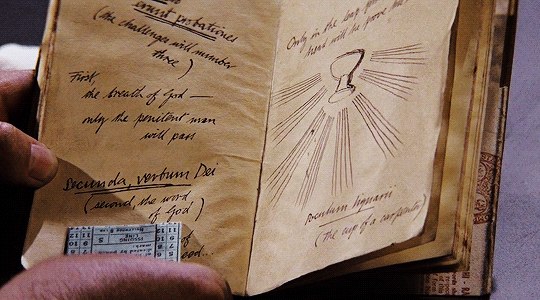 erunt probationes
(the challenges will number
three)
First,
the breath of God —
only the penitent man
will pass
Secunda, verbum Dei
(second, the word
of God)
of
Only in the leap
head will he prove his
poculum lignarii
(the cup of a carpenter)